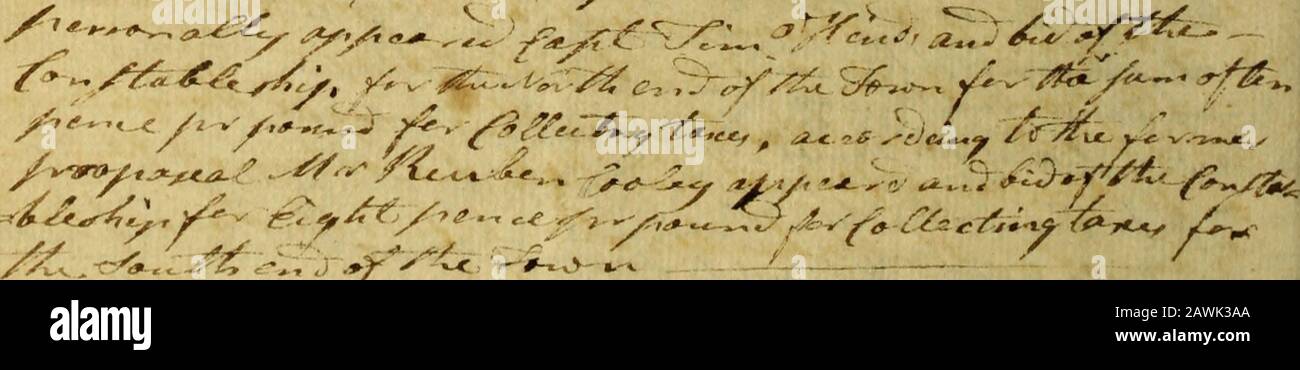 personally appeared Capt Tim o Keid, and bid of the
Constableship for the North end of the Town for the sum of ten
pence pr pound for Collecting taxes, according to the former
proposal Mr Reuben Cooley appeared and bid of the Consta-
bleship for Eight pence pr pound for Collecting taxes for
the South end of the Town
alamy
Image ID: 2AWK3AA
www.alamy.com